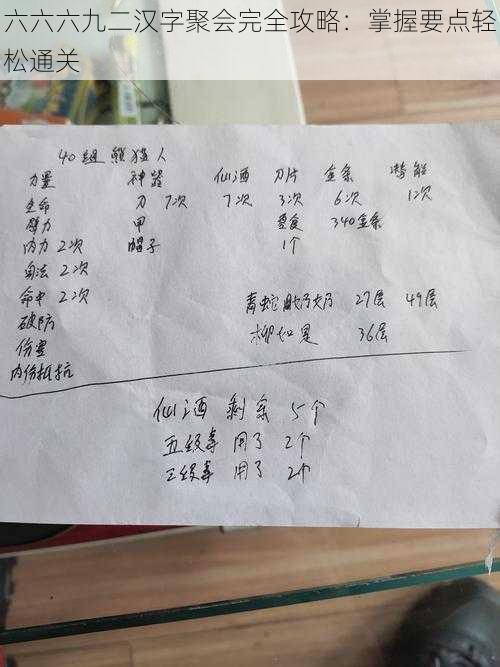 六六六九二汉字聚会完全攻略：掌握要点轻
松通关
40组熊猫人
力量 神器 仙酒 刀片 金条 潜能
生命 刀7次 7次 3次 6次 1次
臂力 甲 要食 340金条
内力2次 帽子 1个
身法2次
命中2次 青蛇 27层 49层
破防 柳如是 36层
伤害
内伤抵抗
仙酒 剩余 5个
五级拳 用了 2个
三级拳 用了 2个